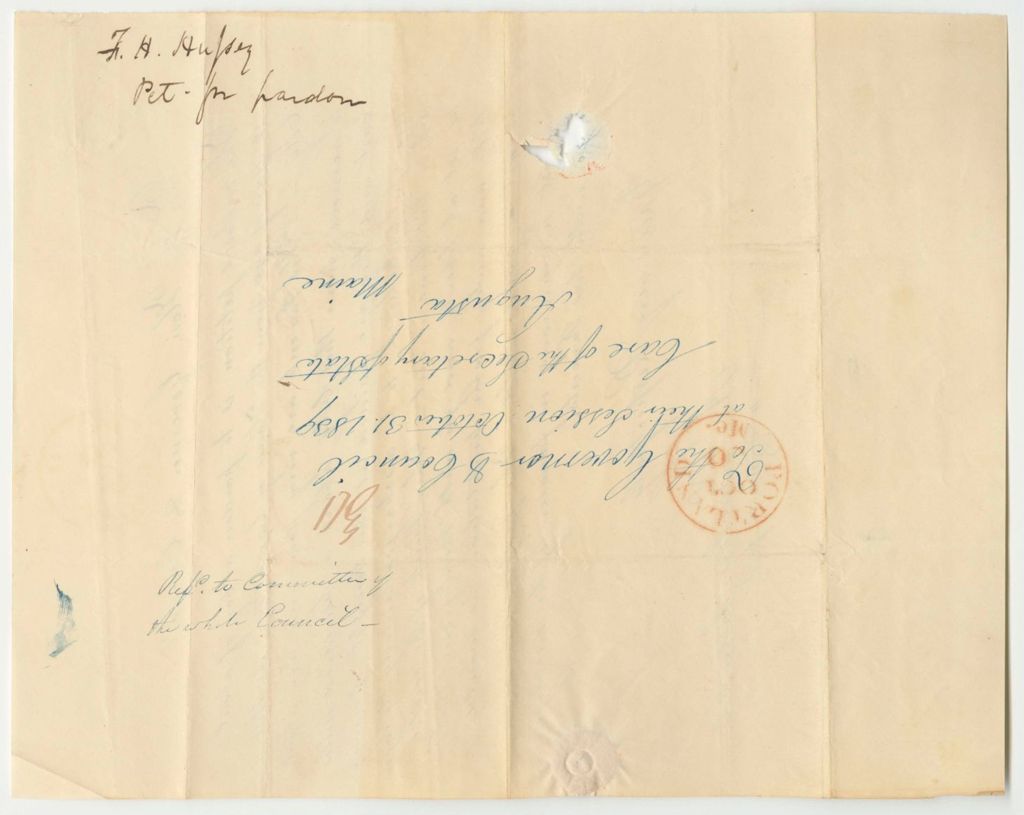 F. H. Hussey
Pet- for pardon
To the Governor & Council
at their Session October 31. 1839
Care of the Secretary of State
Augusta
Maine
PORTLAND
OCT
Me.
30
Refd. to Committee of
the whole Council –